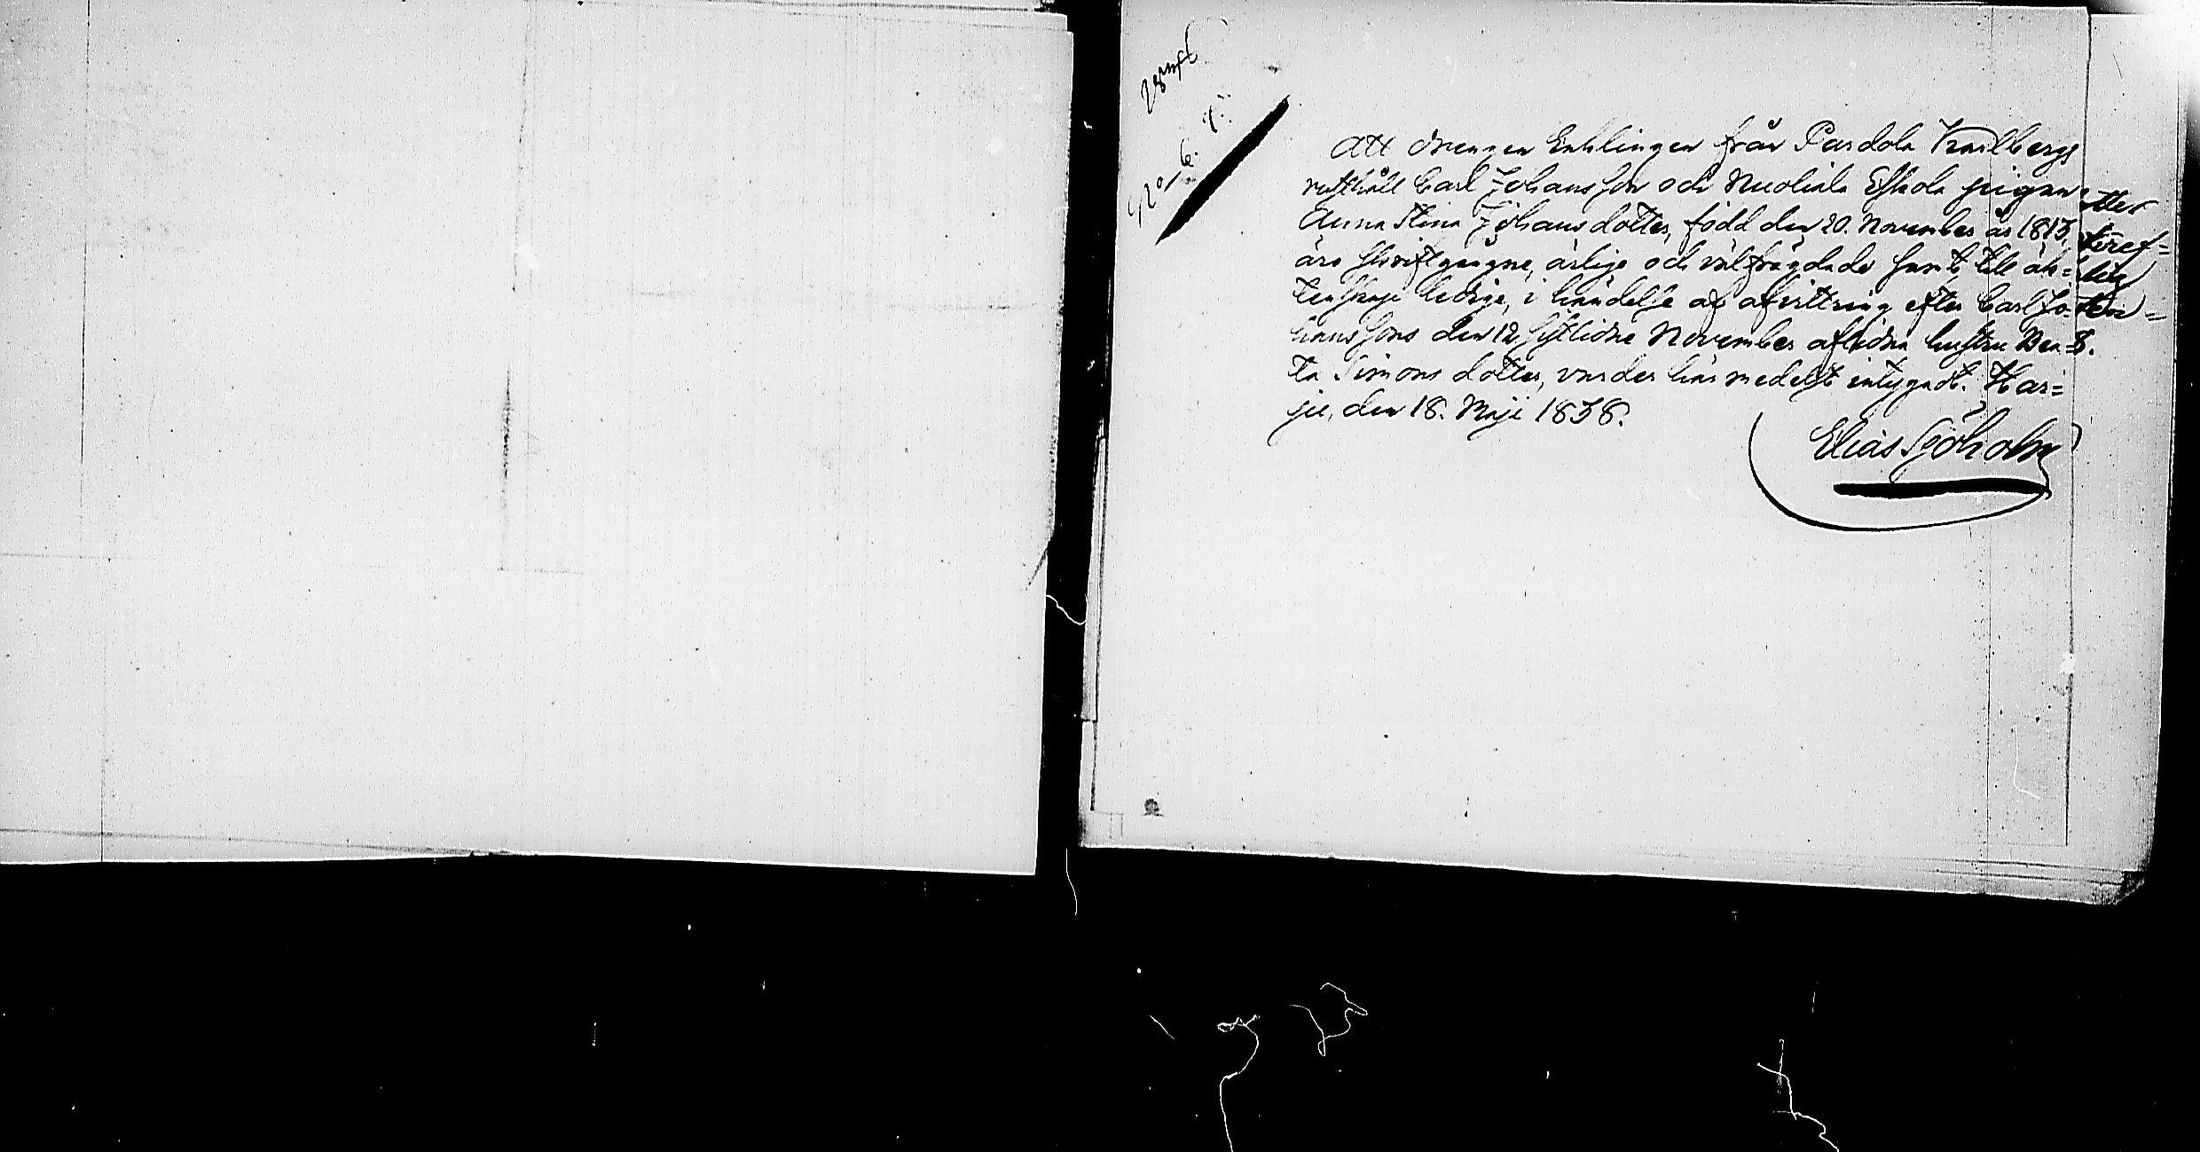 Att drengen Enklingen från Pardola Karlbergs
rusthåll Carl Johansson och Nuoliala Eskola pigan
Anna Stina Johansdotter, född den 20. November år 1813,
äro skriftgångne, ärlige och välfrägdade samt till äk=
tenskap ledige, i händelse af afvittring efter Carl Jo=
hanssons den 12 sistlidne November aflidna hustru Bea=
ta Simonsdotter, varder härmedelst intygadt. Har=
ju, den 18. Maji 1838.
Elias Sjöholm